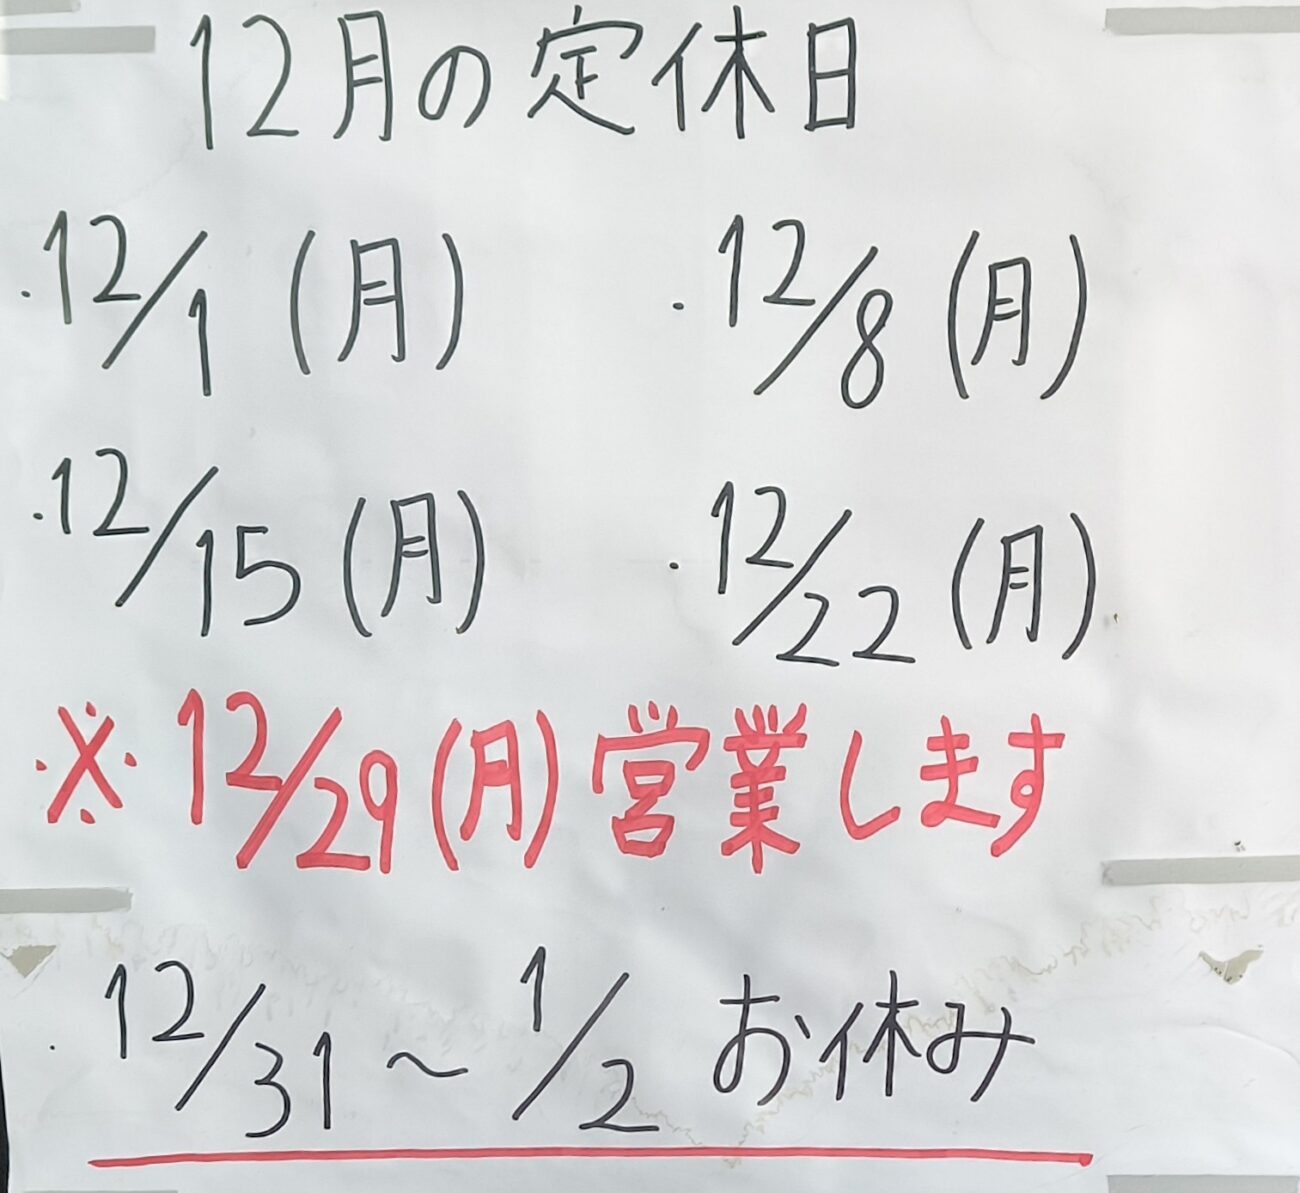 12月の定休日
・12/1(月) ・12/8(月)
・12/15(月) ・12/22(月)
※12/29(月)営業します
・12/31～1/2 お休み